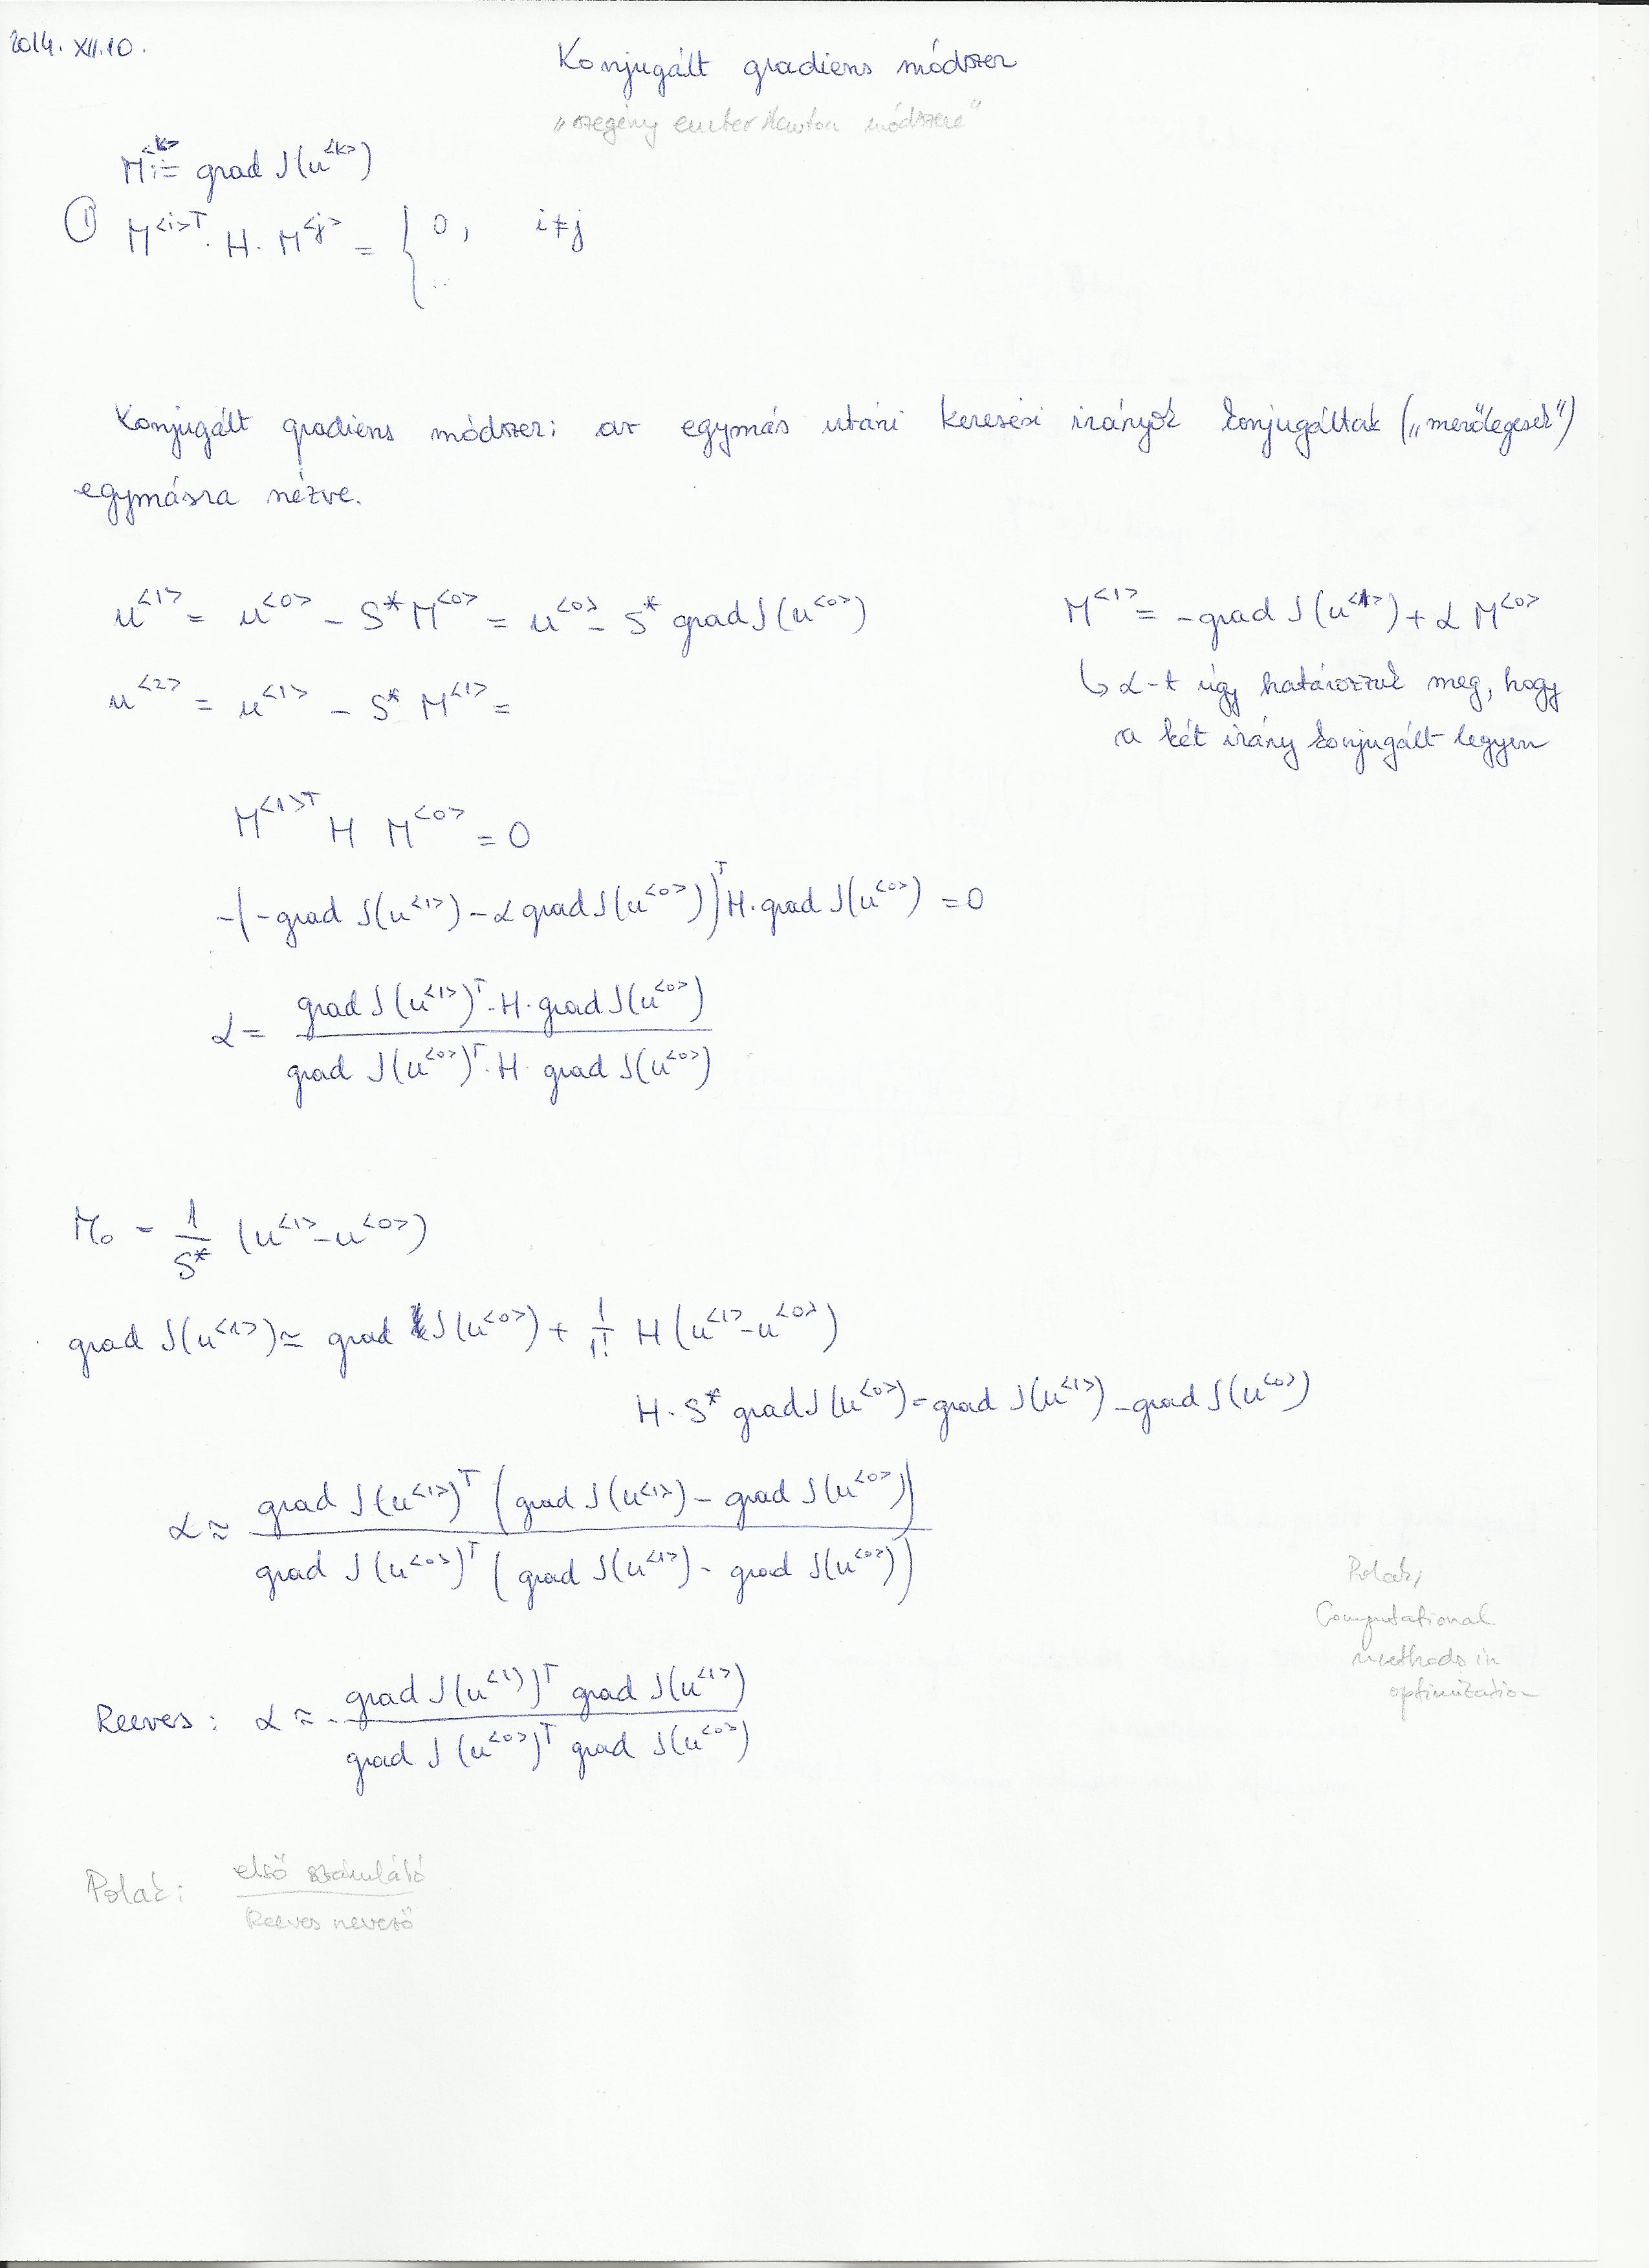 2014. XII. 10.
Konjugált gradiens módszer
„szegény ember Newton módszere"
M^<k> := grad J(u^<k>)
① M^<i>T · H · M^<j> = { 0, i≠j
..
Konjugált gradiens módszer: az egymás utáni keresési irányok konjugáltak („merőlegesek")
egymásra nézve.
u^<1> = u^<0> - S* M^<0> = u^<0> - S* grad J(u^<0>)
M^<1> = -grad J(u^<1>) + α M^<0>
u^<2> = u^<1> - S* M^<1> =
↳ α-t úgy határozzuk meg, hogy
a két irány konjugált legyen
M^<1>T H M^<0> = 0
-(-grad J(u^<1>) - α grad J(u^<0>))^T H · grad J(u^<0>) = 0
α = grad J(u^<1>)^T · H · grad J(u^<0>) / grad J(u^<0>)^T · H · grad J(u^<0>)
M₀ = 1/S* (u^<1> - u^<0>)
grad J(u^<1>) ≃ grad J(u^<0>) + 1/1! H (u^<1> - u^<0>)
H · S* grad J(u^<0>) = grad J(u^<1>) - grad J(u^<0>)
α ≈ grad J(u^<1>)^T (grad J(u^<1>) - grad J(u^<0>)) / grad J(u^<0>)^T (grad J(u^<1>) - grad J(u^<0>))
Polak;
Computational
methods in
optimization
Reeves: α ≈ - grad J(u^<1>)^T grad J(u^<1>) / grad J(u^<0>)^T grad J(u^<0>)
Polak: első számláló / Reeves nevező